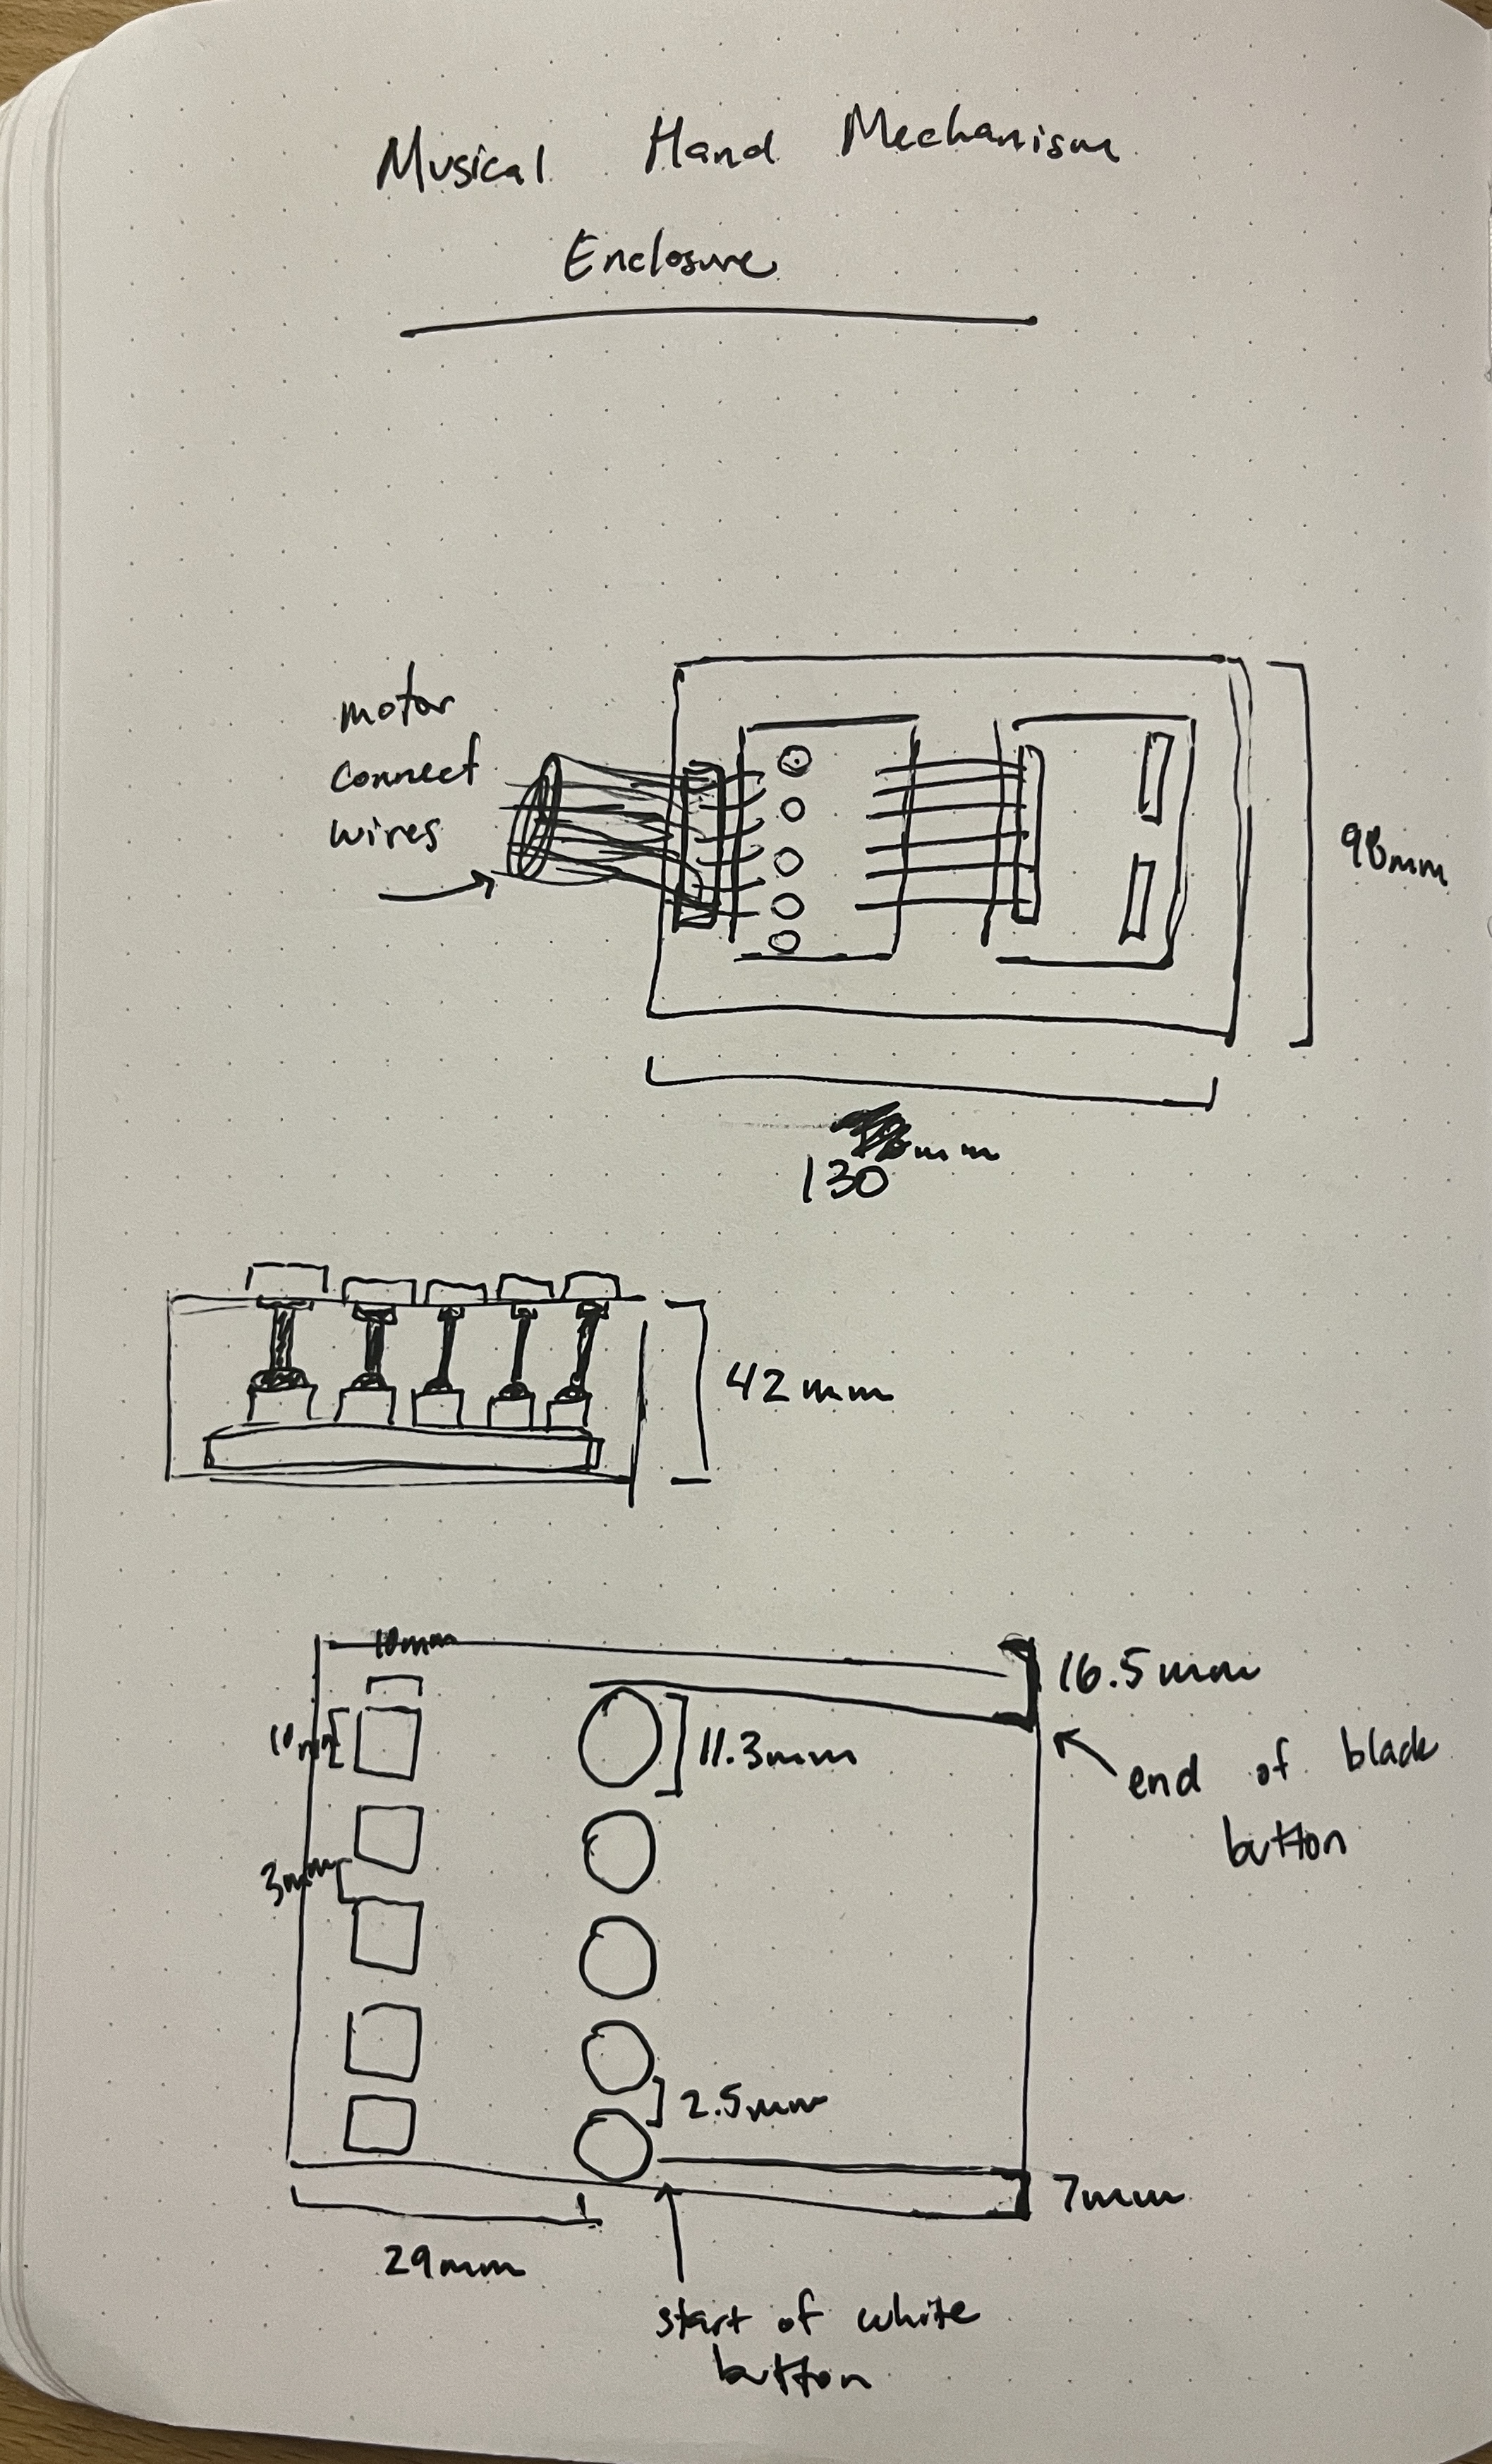 Musical Hand Mechanism
Enclosure
motor
connect
wires
98mm
mm
130
42mm
10mm
10mm
16.5mm
11.3mm
end of black
button
3mm
2.5mm
7mm
29mm
start of white
button